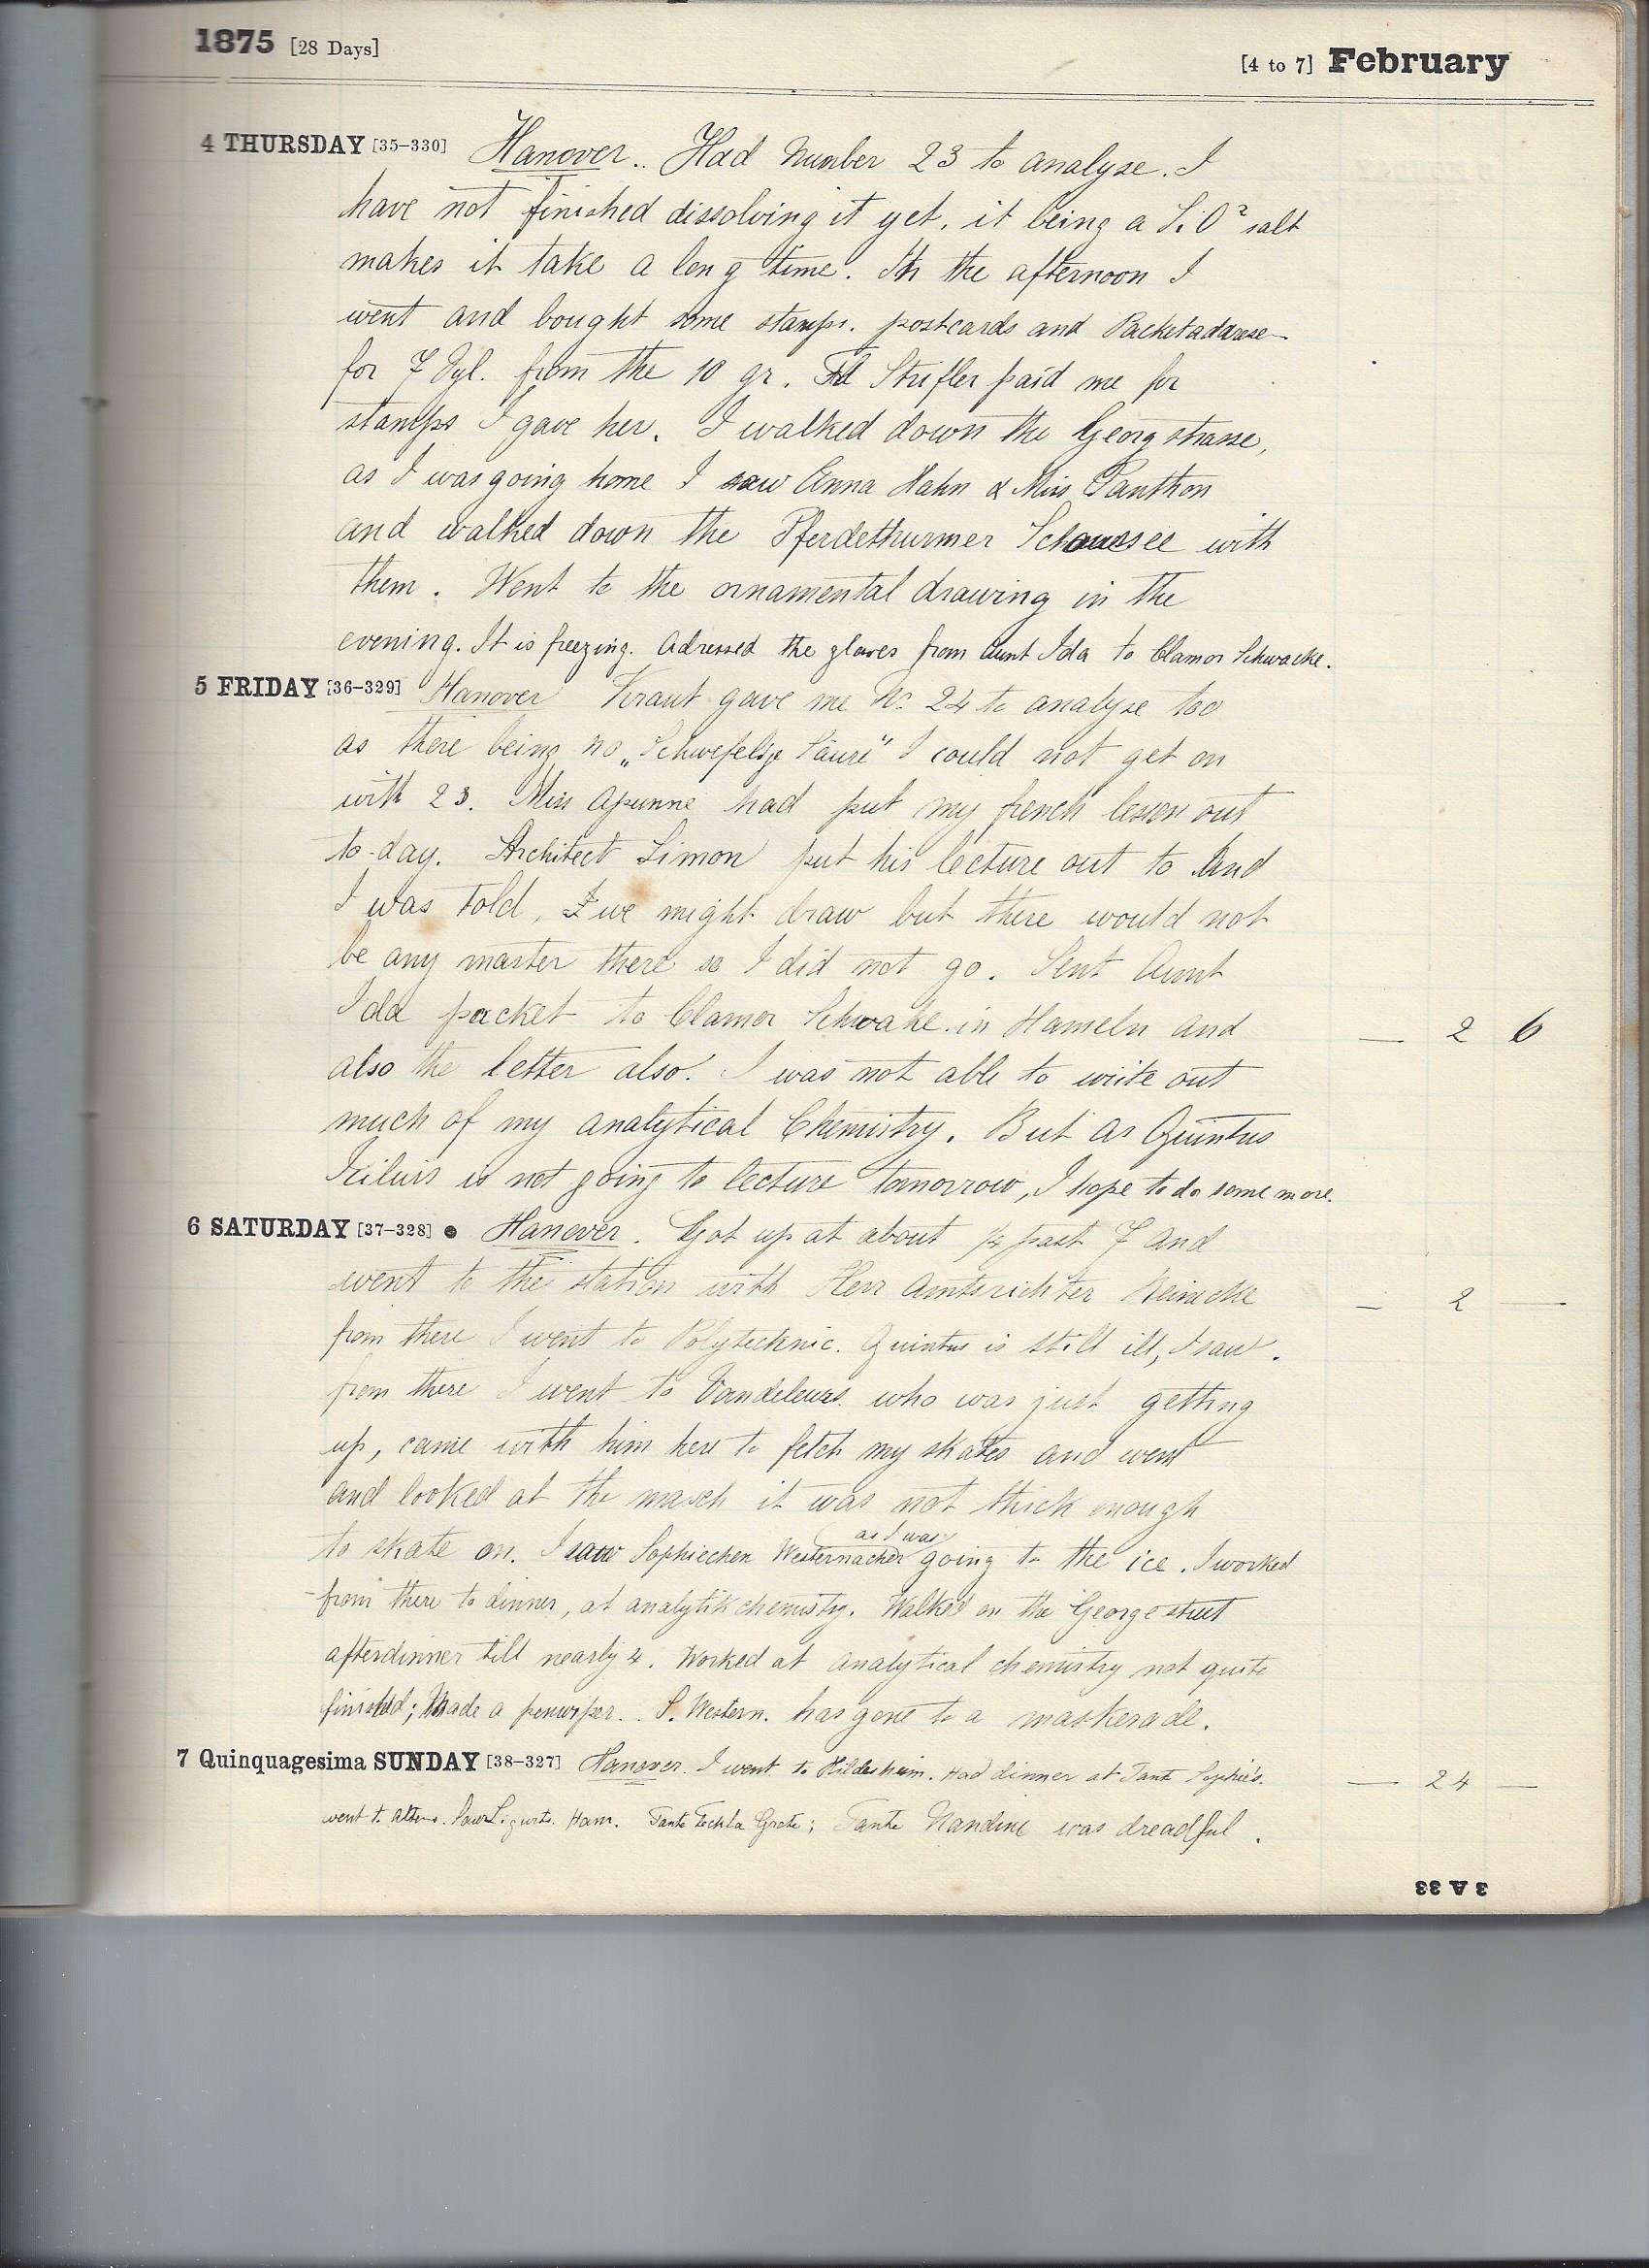 1875 [28 Days]
[4 to 7] February
4 THURSDAY [35-330] Hanover.. Had Number 23 to analyse. I
have not finished dissolving it yet, it being a SiO² salt
makes it take a long time. In the afternoon I
went and bought some stamps. postcards and
for 7 from the 10 gr. Strifler paid me for
stamps I gave her. I walked down the Georgstrasse,
as I was going home I saw Anna Hahn & Miss Panthon
and walked down the Pferdethurmer Schaussee with
them. Went to the ornamental drawing in the
evening. It is freezing. Adressed the gloves from Aunt Ida to Clamor Schwacke.
5 FRIDAY [36-329] Hanover Kraut gave me No. 24 to analyse too
as there being no „Schwefelige Säure" I could not get on
with 23. Miss had put my french lesson out
to-day. Architect Simon put his lecture out to And
I was told, we might draw but there would not
be any master there so I did not go. Sent Aunt
Ida packet to Clamor Schwake in Hameln and
— 2 6
also the letter also. I was not able to write out
much of my analytical Chemistry. But as Quintus
Icilius is not going to lecture tomorrow, I hope to do some more.
6 SATURDAY [37-328] ● Hanover. Got up at about ¼ past 7 and
went to the station with Herr Amtsrichter Reinecke
— 2 —
from there I went to Polytechnic. Quintus is still ill, I saw.
from there I went to Vandeleurs who was just getting
up, came with him here to fetch my skates and went
and looked at the masch it was not thick enough
to skate on. I saw Sophiechen Westernacher as I was going to the ice. I worked
from there to dinner, at analytik chemistry. Walked on the George street
afterdinner till nearly 4. Worked at analytical chemistry not quite
finished; Made a penwiper. S. Western. has gone to a maskerade.
7 Quinquagesima SUNDAY [38-327] Hanover. I went to Hildesheim. Had dinner at Tant Sophie's.
— 24 —
went to Ham. Tante Teckla Grete; Tante Nandine was dreadful.
3 A 33